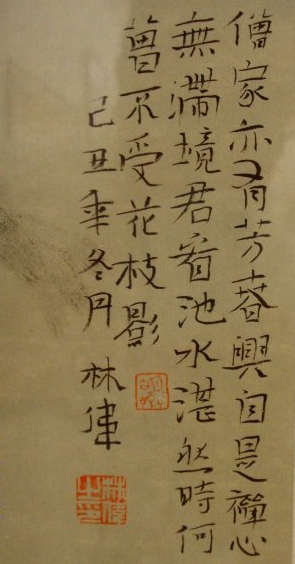 僧家亦有芳春興自是禪心
無滯境君看池水湛然時何
曾不受花枝影
己丑年冬月林偉
林偉之印